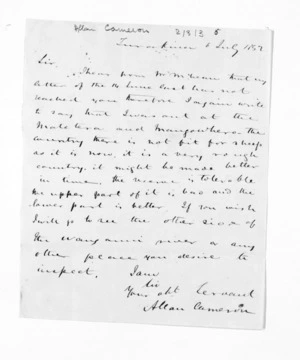 Allan Cameron 2/3/3 6
July 1852
Sir
I hear from Mr McLean that my
letter of the 14 June last has not
reached you therefore I again write
to say that I was out at the
Matotera and Mangawhero the
country there is not fit for sheep
as it is now, it is a very rough
country, it might be made better
in time, the is tolerable
the upper part of it is bad and the
lower part is better If you wish
I will go to see the other side of
the river or any
other place you desire to
inspect. I am
Sir
Your obt Servant
Allan Cameron